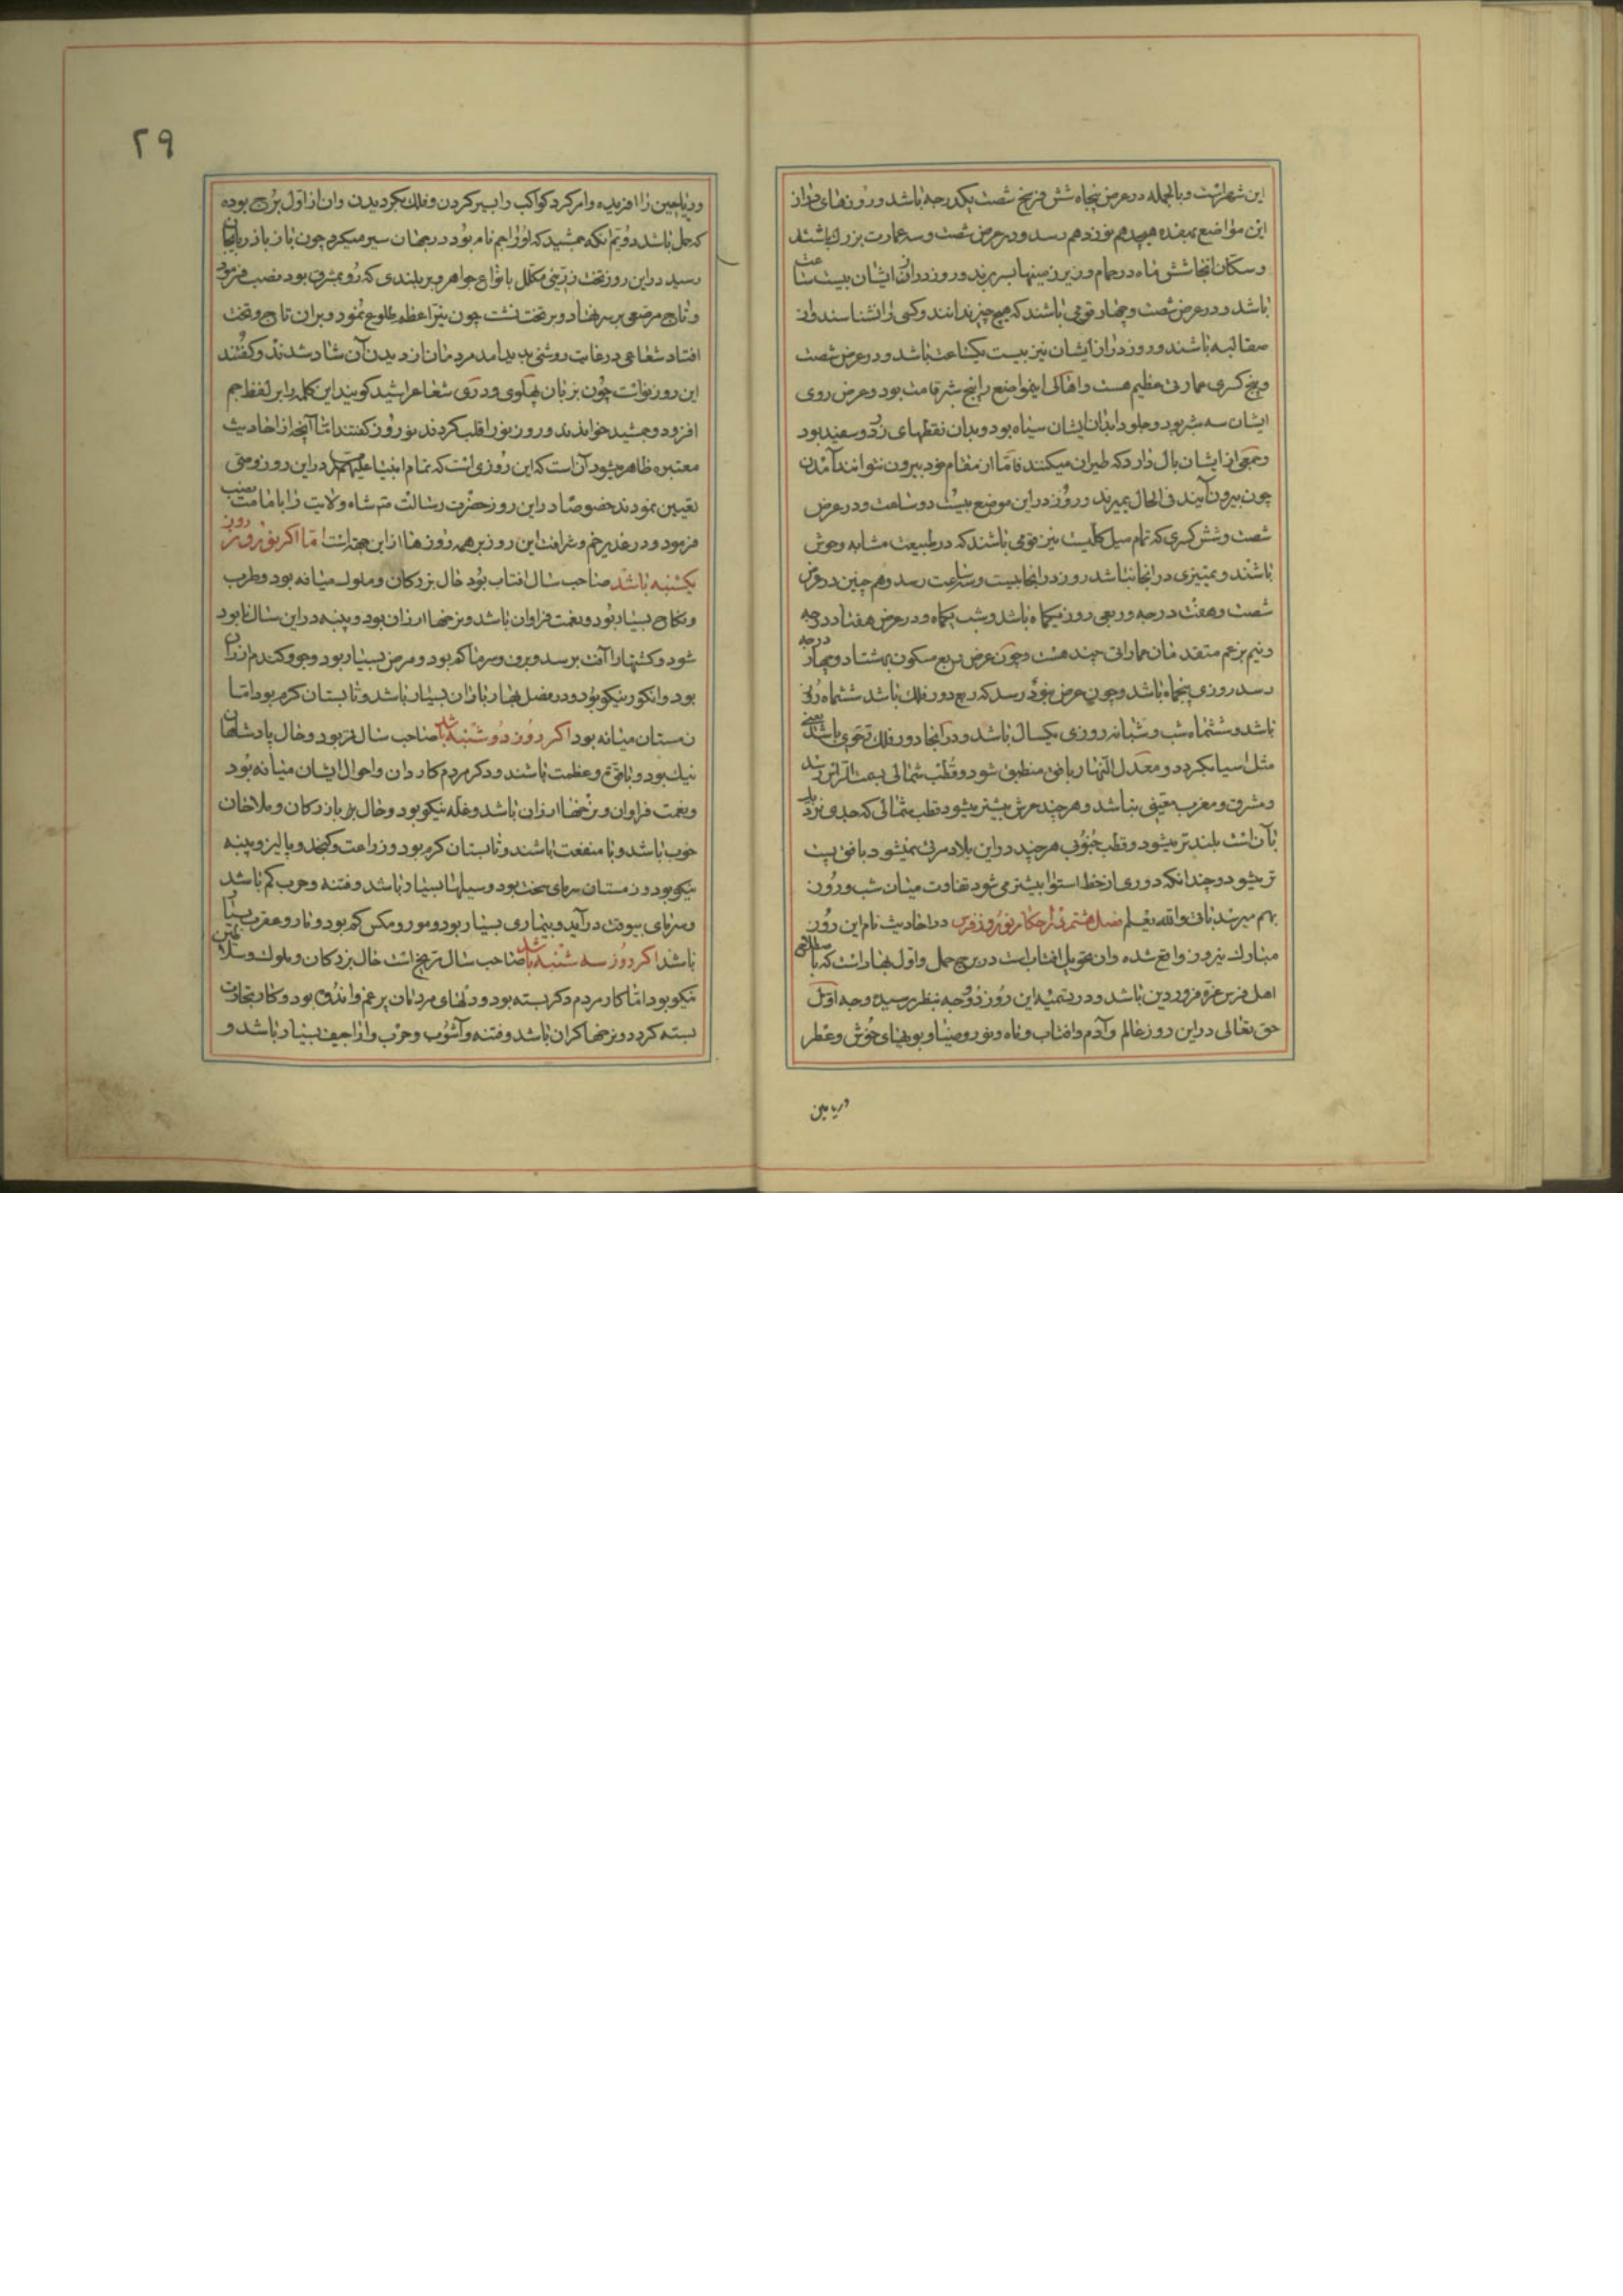 این شهر است و بالجمله در عرض پنجاه شش فرنج شصت یکدرجه باشد و روزهای دراز
این مواضع بهفده هیجدهم نوزدهم رسد و در عرض شصت و سه عمارت بزرك باشند
و سکان انجا شش ماه در حمام و زیر زمینها بسر برند و روز دراز ایشان بیست ساعت
باشد و در عرض شصت و چهار قومی باشند که هیچ چیز ندانند و کسی را نشناسند و از
صقالبه باشند و روز دراز ایشان نیز بیست یکساعت باشد و در عرض شصت
و پنج کسری عمارتی عظیم هست و اهالی اینمواضع را پنج شبر قامت بود و عرض روی
ایشان سه شبر بود و جلود ابدان ایشان سیاه بود و بدان نقطهای زرد و سفید بود
و جمعی از ایشان بال دارد که طیران میکنند فاما از مقام خود بیرون نتوانند آمدن
چون بیرون آیند فی الحال بمیرند و روز در این موضع بیست دو ساعت و در عرض
شصت و شش کسری که تمام سیل کلیست نیز قومی باشند که در طبیعت مشابه وحوش
باشند و تمییزی در انجا نباشد روز در انجا بیست و سه ساعت رسد و هم چنین در عرض
شصت و هفت درجه و ربعی روز یکماه باشد و شب یکماه و در عرض هفتاد درجه
و نیم بزعم متقدمان عماراتی چند هست و چون عرض ربع مسکون بهشتاد و چهار درجه
رسد روزی پنجماه باشد و چون عرض بنود رسد که ربع دور فلك باشد ششماه روز
باشد و ششماه شب و شبانه روزی یکسال باشد و در آنجا دور فلك رحوی باشد یعنی
مثل اسیا بگردد و معدل النهار بافق منطبق شود و قطب شمالی بسمت الراس رسد
و مشرق و مغرب معینی نباشد و هر چند عرض بیشتر میشود قطب شمالی که جدی نزدیك
بآن است بلندتر میشود و قطب جنوبی هر چند در این بلاد مرئی نمیشود بافق پست
تر میشود و چندانکه دوری از خط استوا بیشتر می شود تفاوت میان شب و روز
بهم میرسد باقی والله یعلم فصل هشتم در احکام نوروز فرس در احادیث نام این روز
مبارك نیروز واقع شده و ان تحویل افتاب است در برج حمل و اول بهار است که باصطلاح
اهل فرس غره فروردین باشد و در تسمیه این روز دو وجه بنظر رسیده وجه اول
حق تعالی در این روز عالم و آدم و افتاب و ماه و نور و ضیا و بویهای خوش و عطر
و ریاحین
۲۹
و ریاحین را افریده و امر کرد کواکب را بسیر کردن و فلك بگردیدن و ان از اول برج بوده
که حمل باشد دویم انکه جمشید که او را جم نام بود در جهان سیر میکرد چون باذربایجان
رسید در این روز تخت زرینی مکلل بانواع جواهر و بر بلندی که رو بمشرق بود نصب فرمود
و تاج مرصعی بر سر نهاد و بر تخت نشت چون نیر اعظم طلوع نمود و بران تاج و تخت
افتاد شعاعی در غایت روشنی پدید امد مردمان از دیدن آن شاد شدند و کفتند
این روز نو است چون بزبان پهلوی و دری شعاع را شید کویند این کلمه را بر لفظ جم
افزود و جمشید خواندند و روز نو را قلب کردند نوروز کفتند اما آنچه از احادیث
معتبره ظاهر میشود آن است که این روزی است که تمام انبیا علیهم السلام در این روز وصی
تعیین نمودند خصوصا در این روز حضرت رسالت ص شاه ولایت را بامامت نصب
فرمود و در غدیر خم و شرافت این روز بر همه روزها از این جهت است اما اکر نوروز روز
یکشنبه باشد صاحب سال افتاب بود حال بزرکان و ملوك میانه بود و طرب
و نکاح بسیار بود و نعمت فراوان باشد و نرخها ارزان بود و پنبه در این سال نابود
شود و کشتها را آفت برسد و برف و سرما کم بود و مرض بسیار بود و جو و کندم ارزان
بود و انکور نیکو بود و در فصل بهار باران بسیار باشد و تابستان کرم بود اما
زمستان میانه بود اکر روز دوشنبه باشد صاحب سال قمر بود و حال پادشاهان
نیك بود و با قوت و عظمت باشند و دکر مردم کاردان و احوال ایشان میانه بود
و نعمت فراوان و نرخها ارزان باشد و غله نیکو بود و حال بازرکان و ملاخان
خوب باشد و با منفعت باشند و تابستان کرم بود و زراعت و کنجد و پالیز و پنبه
نیکو بود و زمستان سرمای سخت بود و سیلها بسیار باشد و فتنه و حرب کم باشد
و سرمای بیوقت در آید و بیماری بسیار بود و مور و مکس کم بود و مار و عقرب بسیار
باشد اکر روز سه شنبه باشد صاحب سال مریخ است حال بزرکان و ملوك و سلاطین
نیکو بود اما کار مردم دکر بسته بود و دلهای مردمان پر غم و اندوه بود و کار تجارت
بسته کردد و نرخها کران باشد و فتنه و آشوب و حرب و اراجیف بسیار باشد و